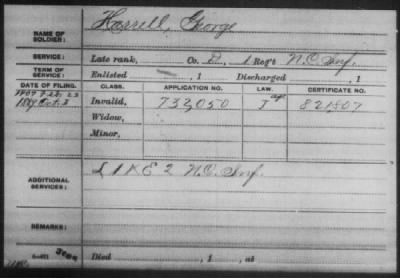 Harrell, George
NAME OF SOLDIER:
SERVICE: Late rank, Co. D, 1 Reg't N.C. Inf.
TERM OF SERVICE: Enlisted , 1 Discharged , 1
DATE OF FILING. CLASS. APPLICATION NO. LAW. CERTIFICATE NO.
1889 Oct. 3 Invalid, 732,050 821807
Widow,
Minor,
ADDITIONAL SERVICES: & E 2 N.C. Inf.
REMARKS:
Died , 1 , at